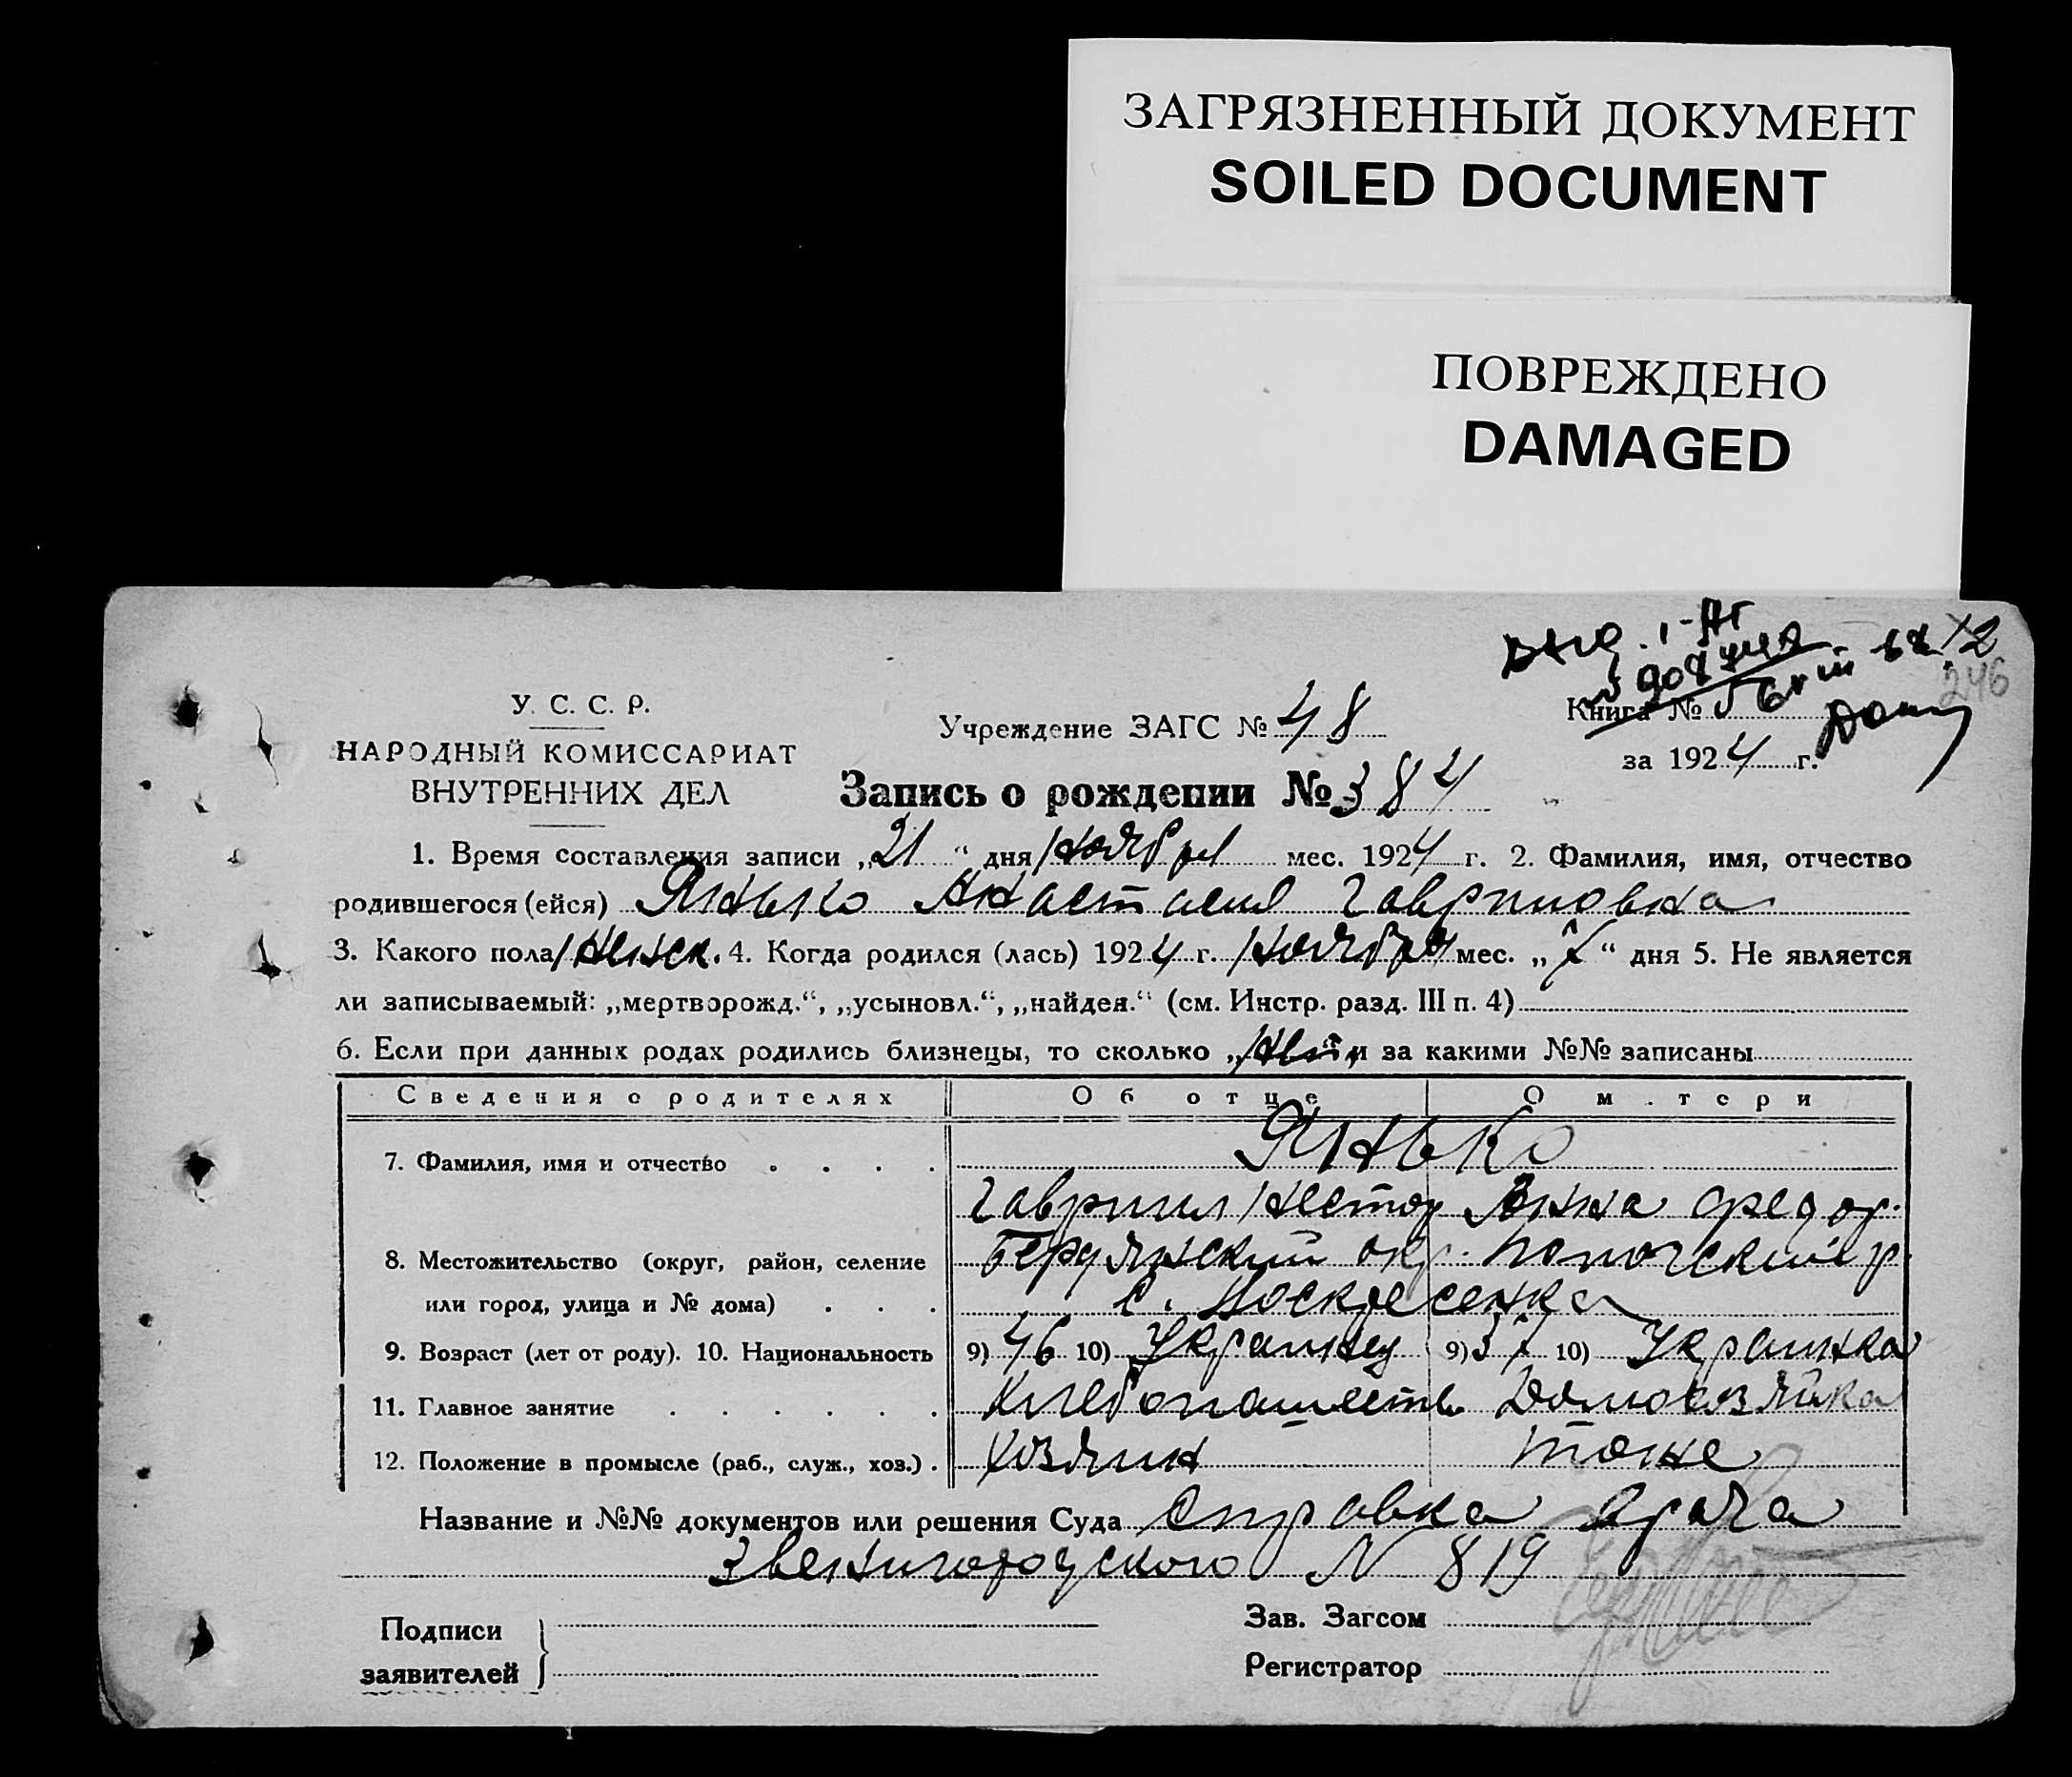 ЗАГРЯЗНЕННЫЙ ДОКУМЕНТ
SOILED DOCUMENT
ПОВРЕЖДЕНО
DAMAGED
246
У. С. С. Р.
НАРОДНЫЙ КОМИССАРИАТ
ВНУТРЕННИХ ДЕЛ
Учреждение ЗАГС № 48
Книга №
за 1924 г.
Запись о рождении № 384
1. Время составления записи „21“ дня Ноября мес. 1924 г. 2. Фамилия, имя, отчество
родившегося (ейся) Янько Анастасия Гавриловна
3. Какого пола Женск. 4. Когда родился (лась) 1924 г. Ноября мес. „7“ дня 5. Не является
ли записываемый: „мертворожд.“, „усыновл.“, „найден.“ (см. Инстр. разд. III п. 4)
6. Если при данных родах родились близнецы, то сколько „Нет“ и за какими №№ записаны
Сведения о родителях Об отце О матери
7. Фамилия, имя и отчество Янько
Гаврил Нестор Анна Федор.
8. Местожительство (округ, район, селение Бердянский окр. Пологский р.
или город, улица и № дома) С. Воскресенка
9. Возраст (лет от роду). 10. Национальность 9) 46 10) Украинец 9) 37 10) Украинка
11. Главное занятие Хлебопашеств Домохозяйка
12. Положение в промысле (раб., служ., хоз.) Хозяин тоже
Название и №№ документов или решения Суда Справка врача
Звенигородского N 819
Подписи
заявителей
Зав. Загсом
Регистратор